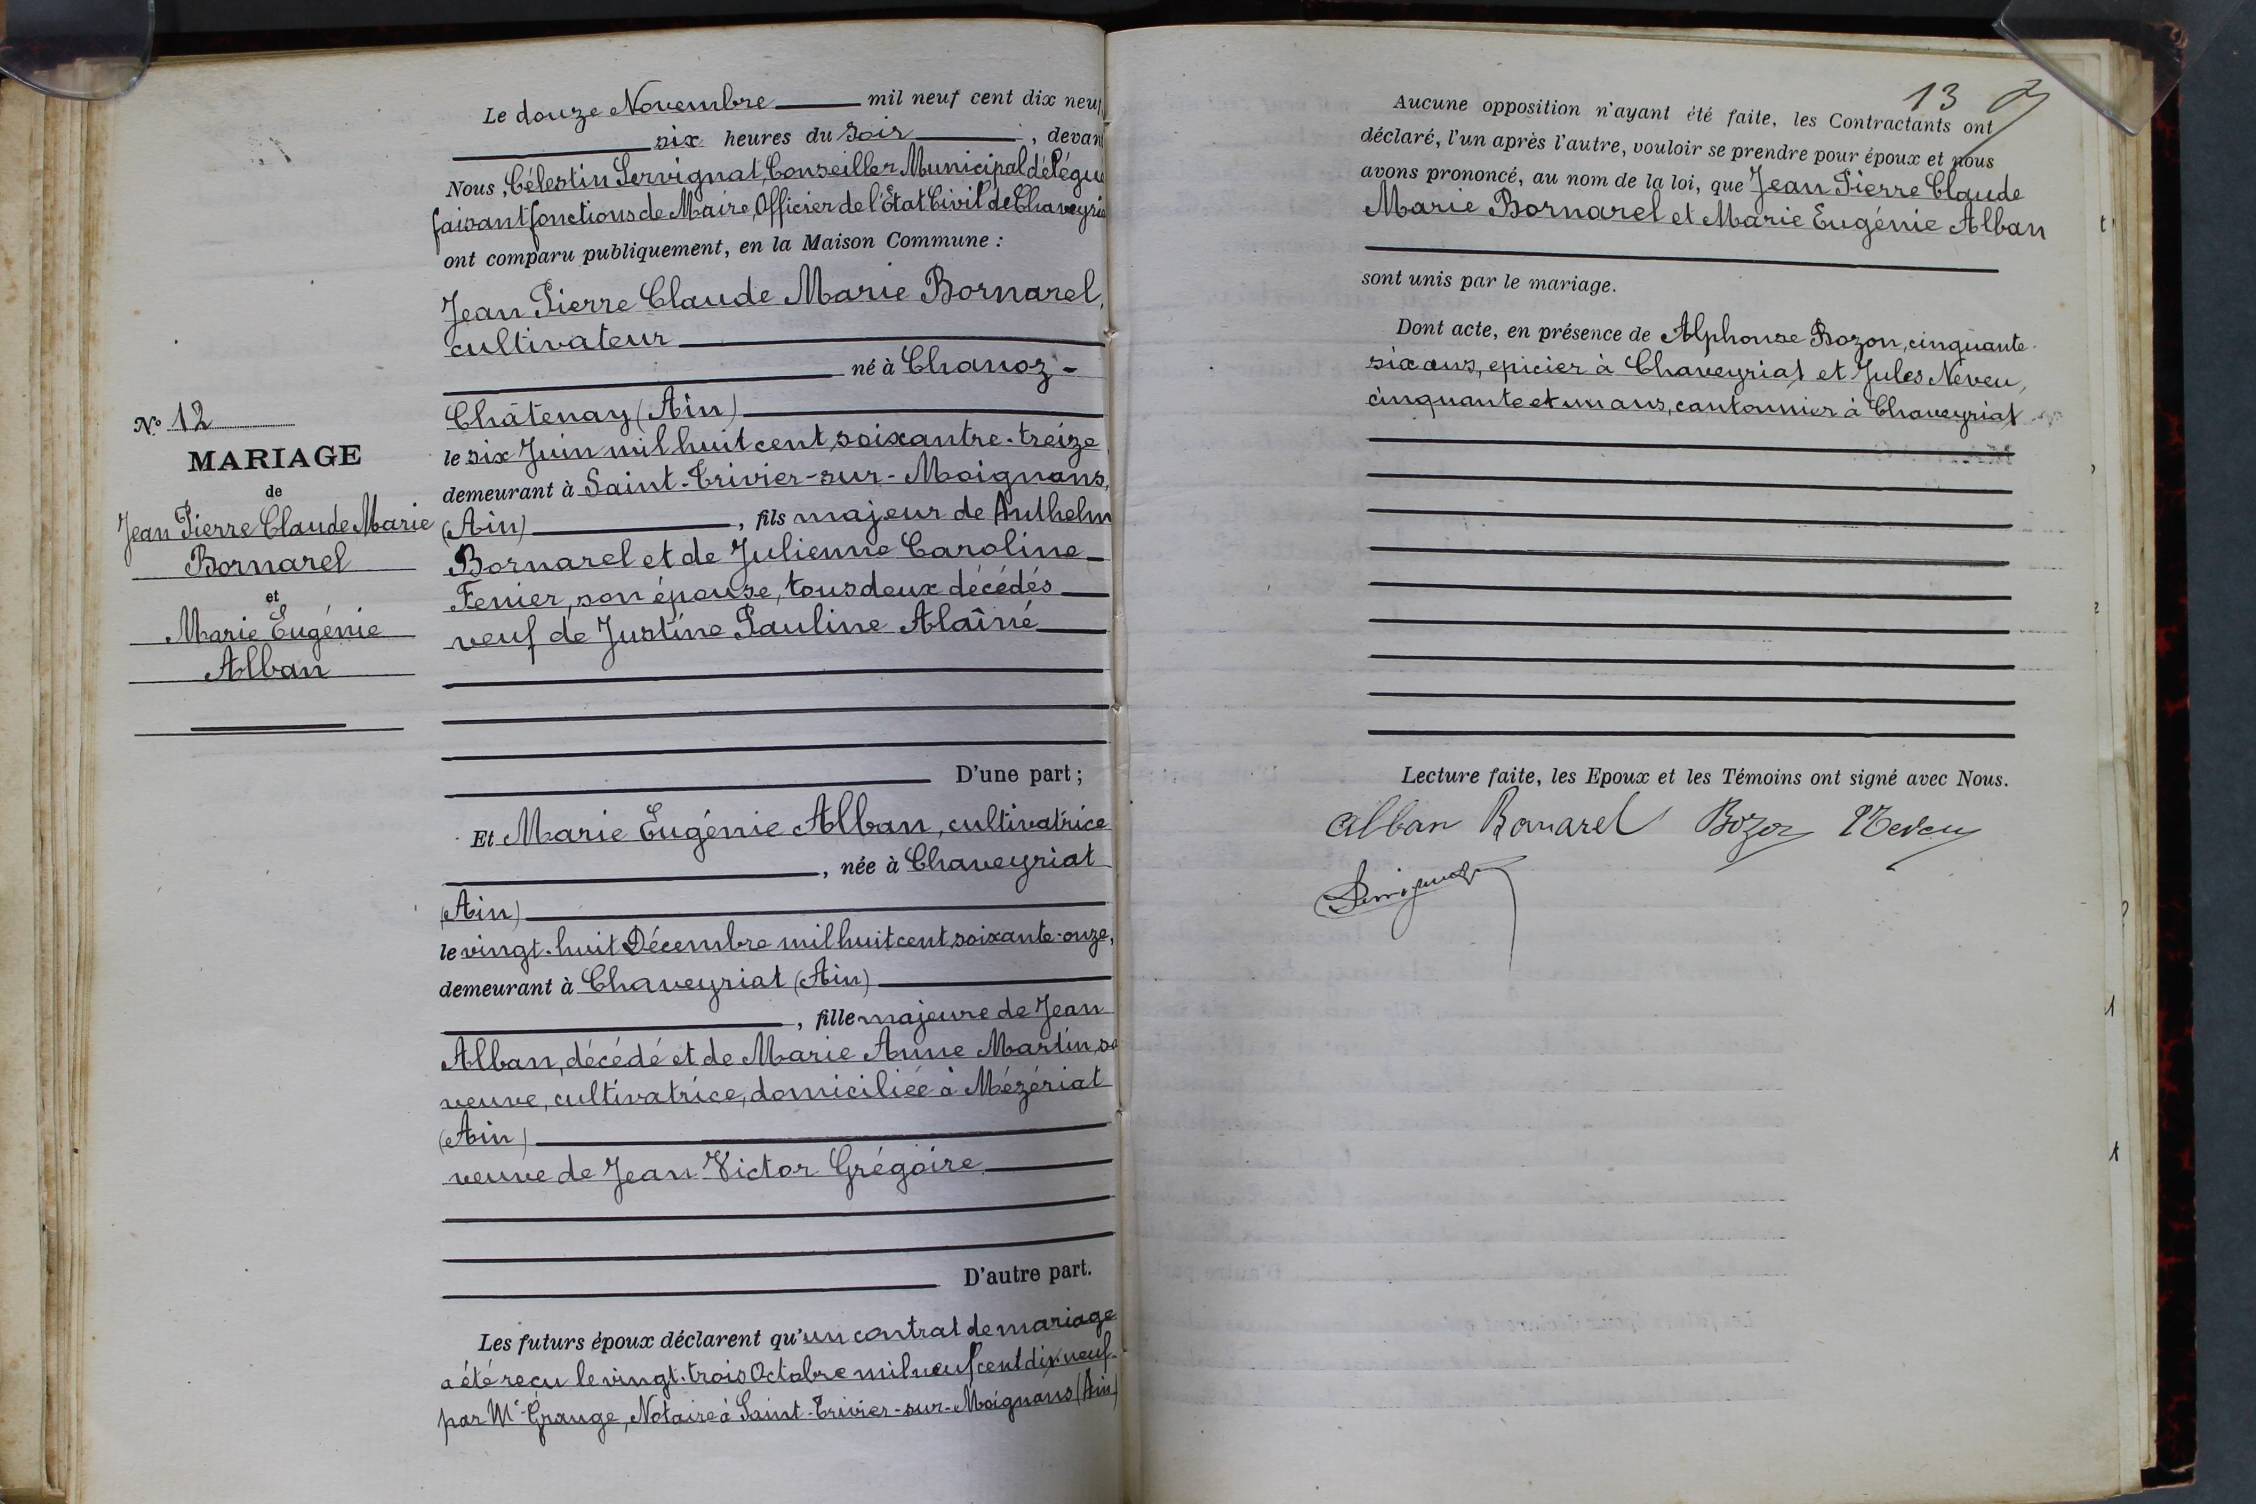 Le douze Novembre mil neuf cent dix neuf,
six heures du soir, devant
Nous, Célestin Servignat, Conseiller Municipal délégué
faisant fonctions de Maire, Officier de l'État Civil de Chaveyriat
ont comparu publiquement, en la Maison Commune :
Jean Pierre Claude Marie Bornarel,
cultivateur
né à Chanoz-
Châtenay (Ain)
le six Juin mil huit cent soixantre-treize
demeurant à Saint-Trivier-sur-Moignans,
(Ain), fils majeur de Anthelm
Bornarel et de Julienne Caroline
Ferrier, son épouse, tous deux décédés
veuf de Justine Pauline Alaîné
D'une part ;
Et Marie Eugénie Alban, cultivatrice
, née à Chaveyriat
(Ain)
le vingt-huit Décembre mil huit cent soixante-onze,
demeurant à Chaveyriat (Ain)
, fille majeure de Jean
Alban, décédé et de Marie Anne Martin, sa
veuve, cultivatrice, domiciliée à Mézériat
(Ain)
veuve de Jean Victor Grégoire
D'autre part.
Les futurs époux déclarent qu'un contrat de mariage
a été reçu le vingt-trois Octobre mil neuf cent dix neuf
par Me Grange, Notaire à Saint-Trivier-sur-Moignans (Ain)
No 12
MARIAGE
de
Jean Pierre Claude Marie
Bornarel
et
Marie Eugénie
Alban
13
Aucune opposition n'ayant été faite, les Contractants ont
déclaré, l'un après l'autre, vouloir se prendre pour époux et nous
avons prononcé, au nom de la loi, que Jean Pierre Claude
Marie Bornarel et Marie Eugénie Alban
sont unis par le mariage.
Dont acte, en présence de Alphonse Bozon, cinquante-
six ans, epicier à Chaveyriat et Jules Neveu,
cinquante et un ans, cantonnier à Chaveyriat
Lecture faite, les Epoux et les Témoins ont signé avec Nous.
Alban Bornarel Bozon Neveu
Servignat